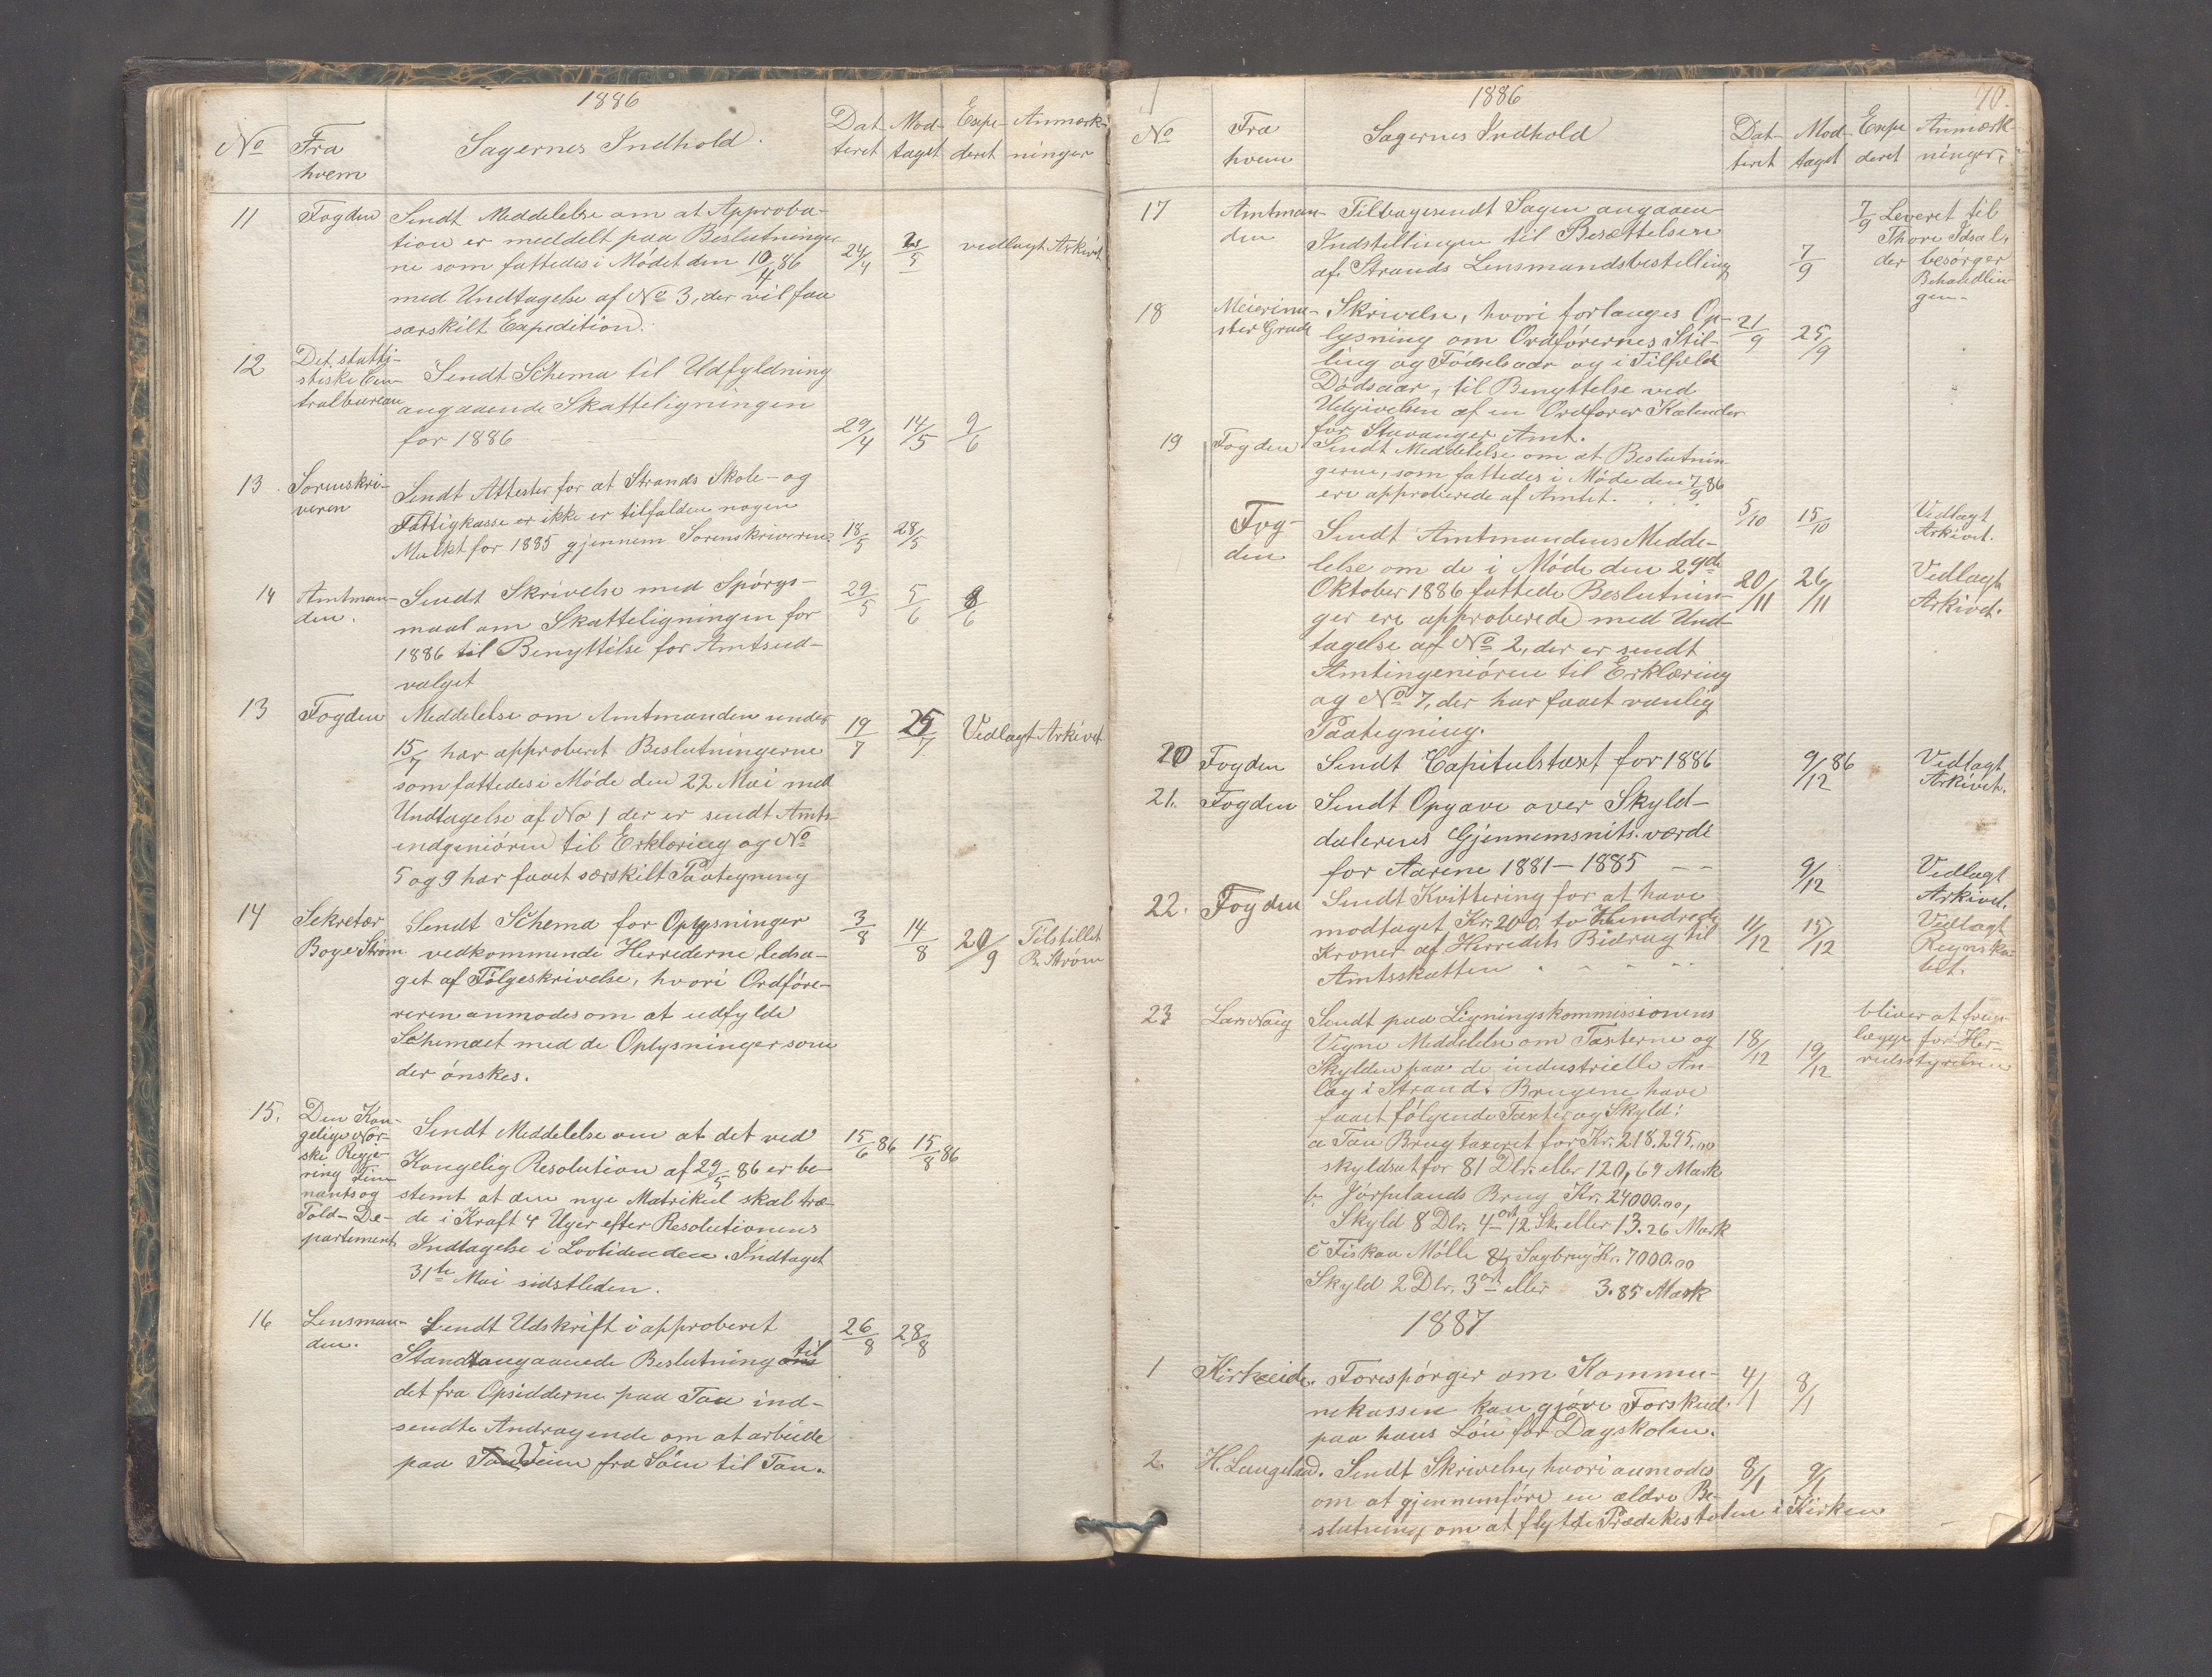 1886
No
Fra hvem
Sagernes Indhold.
Datteret
Modtaget
Expederet
Anmærkninger
11
Fogden
Sendt Meddelelse om at Approba-
tion er meddelt paa Beslutninger
ne som fattedes i Mödet den 10/4 86
med Undtagelse af No 3, der vil faa
særskilt Expedition.
24/4
5
vedlagt Arkivet
12
Det statti-
stiske Cen-
tralbureau
Sendt Schema til Udfyldning
angaaende Skatteligningen
for 1886
29/4
14/5
9/6
13
Sorenskri-
veren
Sendt Attester for at Strands Skole- og
Fattigkasse er ikke er tilfalden nogen
Mulkt for 1885 gjennem Sorenskriveren.
18/5
28/5
14
Amtman-
den.
Sendt Skrivelse med Spörgs-
maal om Skatteligningen for
1886 til Benyttelse for Amtsud-
valget
29/5
5/6
8/6
13
Fogden
Meddelelse om Amtmanden under
15/7 har approberet Beslutningerne
som fattedes i Möde den 22 Mai med
Undtagelse af No 1 der er sendt Amts-
indgeniören til Erklæring og No
5 og 9 har faaet særskilt Paategning
19/7
25/7
Vedlagt Arkivet
14
Sekretær
Boye Ström
Sendt Schema for Oplysninger
vedkommende Herrederne ledsa-
get af Fölgeskrivelse, hvori Ordföre-
reren anmodes om at udfylde
Schemaet med de Oplysninger som
der önskes.
3/8
14/8
20/9
Tilstillet
B. Ström
15.
Den Kon-
gelige Nor-
ske Regje-
ring Fin
nants og
Told-De-
partement
Sendt Meddelelse om at det ved
Kongelig Resolution af 29/5 86 er be-
stemt at den nye Matrikul skal træ-
de i Kraft 4 Uger efter Resolutionens
Indtagelse i Lovtidenden. Indtaget
31te Mai sidstleden.
15/6 86
15/8 86
16
Lensman-
den.
Sendt Udskrift i approberet
Stand angaaende Beslutning til
det fra Opsidderne paa Tau ind-
sendte Andragende om at arbeide
paa Veien fra Söen til Tau.
26/8
28/8
1886
70.
No
Fra
hvem
Sagernes Indhold
Datteret
Modtaget
Expederet
Anmærkninger
17
Amtman-
den
Tilbagesendt Sagen angaaen-
Indstillingen til Besættelsen
af Strands Lensmandsbestilling
7/9
7/9
Leveret til
Thore Idsal,
der besörger
Behandlin
gen-
18
Meierime-
ster Grude
Skrivelse, hvori forlanges Op-
lysning om Ordförernes Stil-
ling og Födselsaar og i Tilfælde
Dödsaar, til Benyttelse ved
Udgivelsen af en Ordförer Kalender
for Stavanger Amt.
21/9
25/9
19
Fogden
Sendt Meddelelse om at Beslutnin-
gerne, som fattedes i Möde den 7/9 86
ere approberede af Amtet.
5/10
15/10
Vedlagt
Arkivet.
Fog-
den
Sendt Amtmandens Medde-
lelse om de i Möde den 29de
Oktober 1886 fattede Beslutnin-
ger ere approberede med Und-
tagelse af No 2, der er sendt
Amtingeniören til Erklæring
og No 7, der har faaet vanlig
Paategning.
20/11
26/11
Vedlagt
Arkivet.
20
Fogden
Sendt Capitulstaxt for 1886
9/12 86
Vedlagt
Arkivet.
21.
Fogden
Sendt Opgave over Skyld-
dalerens Gjennemsnitsværdi
for Aarene 1881-1885 - -
9/12
Vedlagt
Arkivet.
22.
Fogden
Sendt Kvittering for at have
modtaget Kr. 200. to Hundrede
Kroner af Herredets Bidrag til
Amtsskatten
11/12
15/12
Vedlagt
Regnska-
bet.
23
Lars Norg
Sendt paa Ligningskommissionens
Vegne Meddelelse om Taxterne og
Skylden paa de industrielle An-
læg i Strand. Brugene have
faaet fölgende Taxter og Skyld:
a Tau Brug taxeret for Kr. 218,295.00
skyldsat for 81 Dlr. eller 120,69 Mark
b. Jörpelands Brug Kr. 24000.00,
Skyld 8 Dlr. 4 ort 12 Sk. eller 13.26 Mark
c Fiskaa Mölle & Sagbrug Kr. 7000.00
Skyld 2 Dlr. 3 ort eller 3.85 Mark
18/12
19/12
bliver at frem
lægge for Her-
redsstyrelsen
1887
1
Kirkeide.
Forespörger om Kommu-
nekassen kan gjöre Forskud
paa hans Lön for Dagskolen.
4/1
8/1
2.
H. Langeland.
Sendt Skrivelse, hvori anmodes
om at gjennemföre en ældre Be-
slutning om at flytte Prædikestolen i Kirken
8/1
9/1